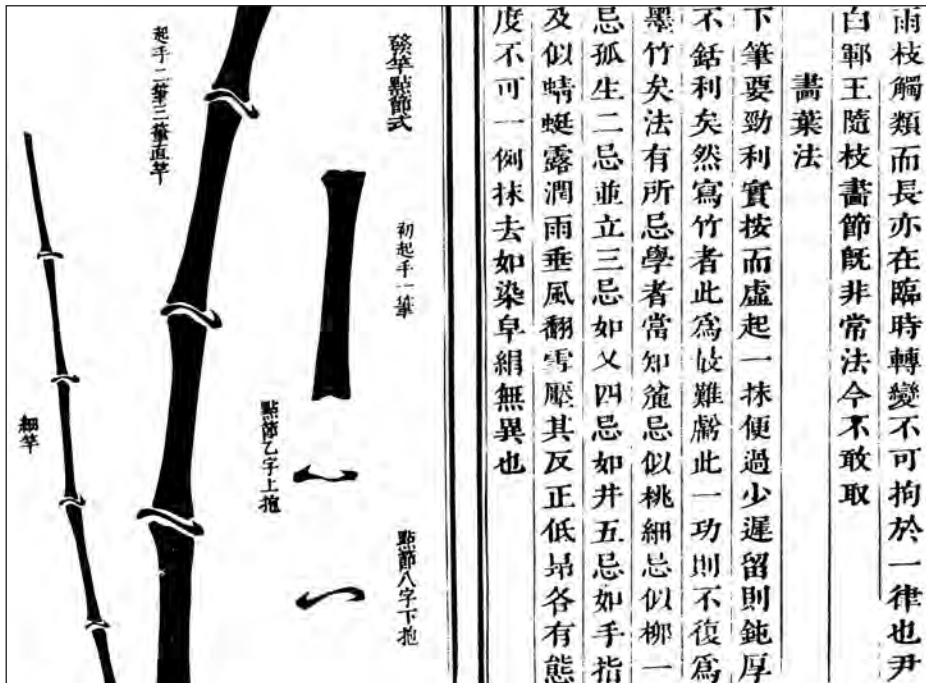 雨枝觸類而長亦在臨時轉變不可拘於一律也尹
白鄆王隨枝畵節旣非常法今不敢取
畵葉法
下筆要勁利實按而虛起一抹便過少遲留則鈍厚
不銛利矣然寫竹者此爲㝡難虧此一功則不復爲
墨竹矣法有所忌學者當知麄忌似桃細忌似柳一
忌孤生二忌並立三忌如乂四忌如井五忌如手指
及似蜻蜓露潤雨垂風翻雪壓其反正低昻各有態
度不可一例抹去如染皁絹無異也
發竿點節式
初起手一筆
點節乙字上抱
點節八字下抱
起手二筆三筆直竿
細竿